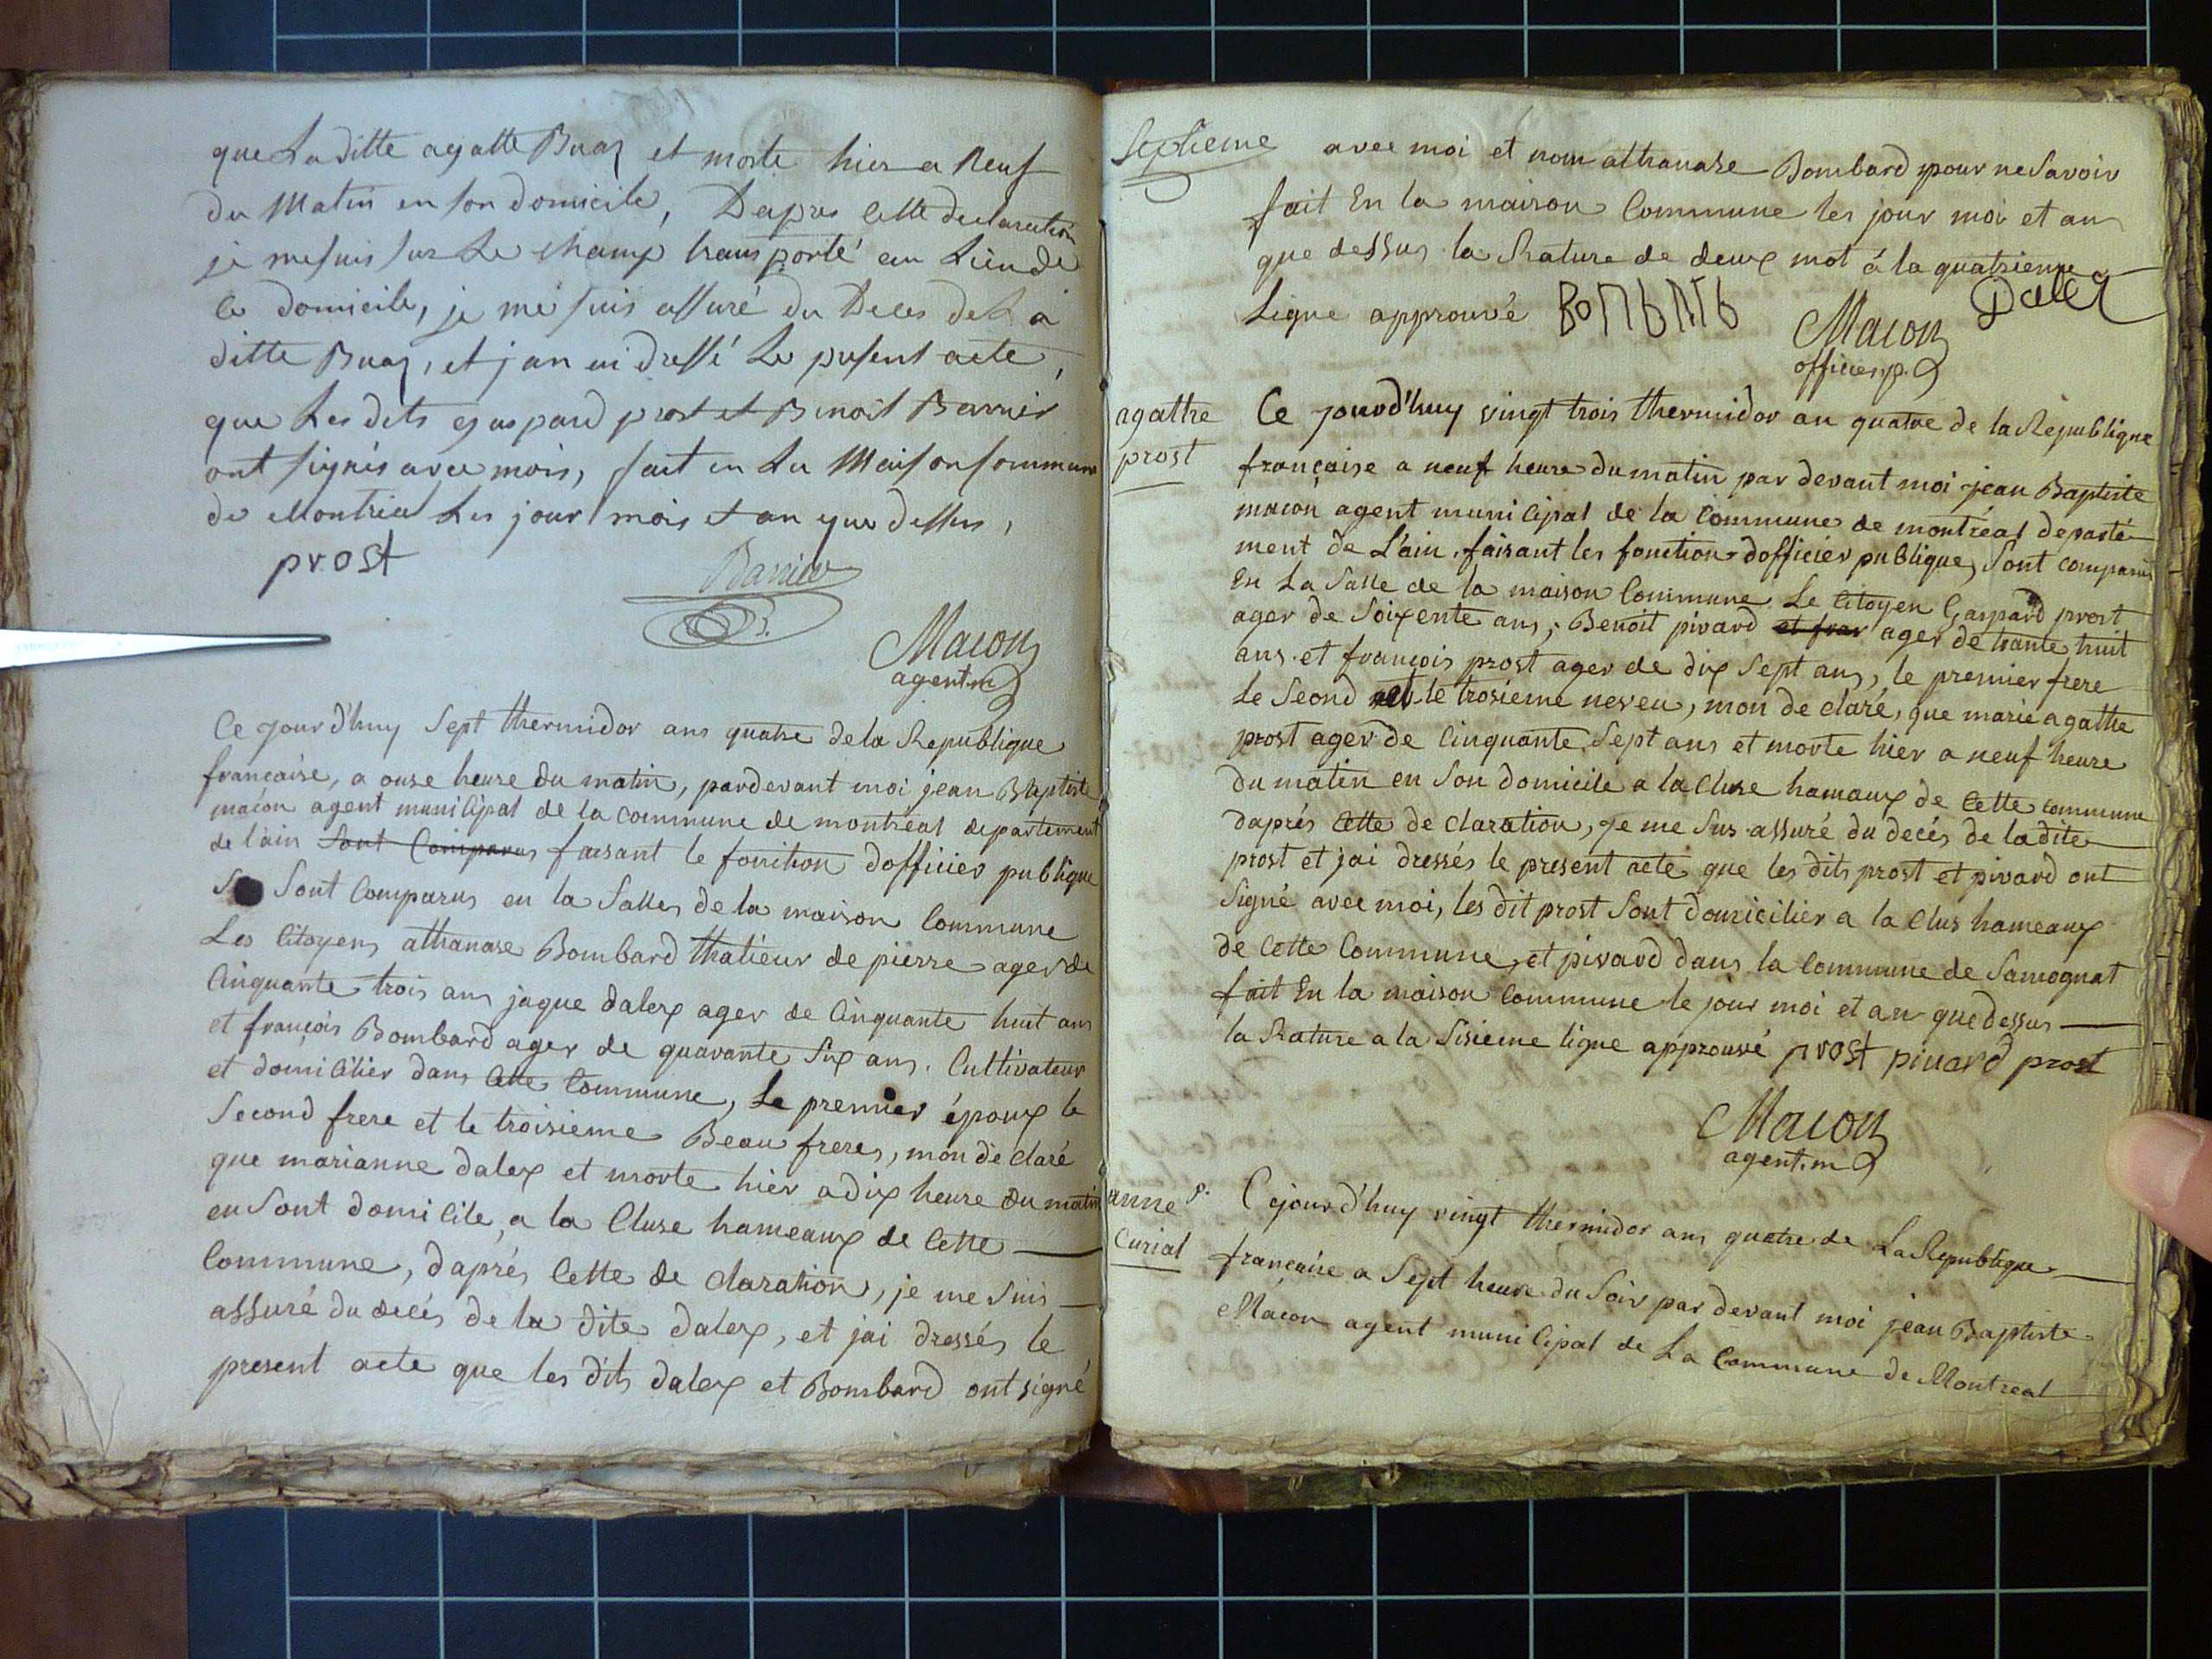 que Laditte agatte Buaz et morte hier a Neuf
du Matin en son domicile, Dapres Cette declaration
je me suis sur Le Champ transporté au Lieu de
Ce domicile, je me suis assuré du Deces de La
ditte Buaz, et jan ai dressé Le present acte,
que Les dits gaspard prost et Benoit Barnier
ont signés avec mois, fait en La Maison Commune
de Montréal Les jour mois et an que dessus,
prost
Macon
agent m
Ce jourd'huy Sept thermidor ans quatre de la Republique
francaise, a onse heure du matin, pardevant moi jean Baptiste
macon agent municipal de la commune de montréal departement
de l'ain sont Comparus faisant le fonction d'officier publique
Sont Comparus en la Salles de la maison Commune
Les Citoyens athanase Bombard thalieur de pierre ager de
Cinquante trois ans jaque dalex ager de Cinquante huit ans
et françois Bombard ager de quarante Six ans. Cultivateur
et domicilier dans Cette Commune, Le premier époux le
Second frere et le troisieme Beau freres, mon dé claré
que marianne dalex et morte hier a dix heure du matin
en Sont domicile, a la Cluse hameaux de Cette
Commune, daprés Cette de claration, je me Suis
assuré du decés de la dite dalex, et jai dressés le
present acte que les dits dalex et Bombard ont signé
Septieme
avec moi et nom athanase Bombard pour ne Savoir
fait En la maison Commune les jour moi et an
que dessus la Rature de deux mot á la quatrieme
Ligne approuvé
Dalex
Macon
officier p.
agathe
prost
Ce jourd'huy vingt trois thermidor an quatre de la Republique
française a neuf heure du matin par devant moi jean Baptiste
macon agent municipal de la Commune de montréal departé
ment de L'ain, faisant les fonction dofficier publique, Sont comparus
En La Salle de la maison Commune Le Citoyen Gaspard prost
ager de Soixente ans, Benoit pivard et fran ager de trante huit
ans et françois prost ager de dix Sept ans, le premier frere
le Seond et le trosieme neveu, mon de claré, que marie agathe
prost ager de Cinquante Sept ans et morte hier a neuf heure
du matin en Son domicile a la Cluse hamaux de Cette commune
daprés Cette de claration, je me Sus assuré du decés de ladite
prost et jai dressés le present acte que les dits prost et pivard ont
Signé avec moi, les dit prost Sont domicilier a la Clus hameaux
de Cette Commune, et pivard dans la Commune de Samognat
fait En la maison Commune le jour moi et an que dessus
la Rature a la Sisieme ligne approuvé prost pivard prost
Macon
agent. m
anne p.
Curial
Cejourd'huy vingt thermidor ans quatre de La Republique
françaire a Sept heure du Soir par devant moi jean Baptiste
Macon agent municipal de La Commune de Montreal